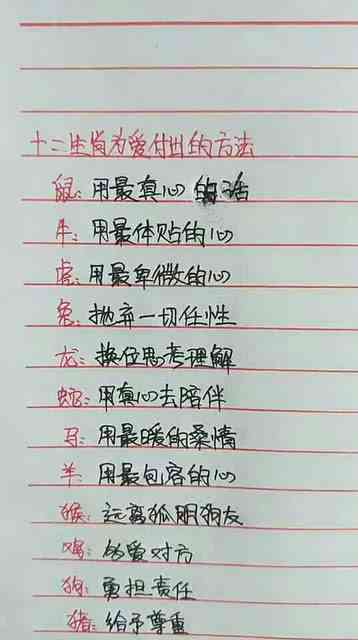 十二生肖为爱付出的方法
鼠:用最真心的话
牛:用最体贴的心
虎:用最卑微的心
兔:抛弃一切任性
龙:换位思考理解
蛇:用真心去陪伴
马:用最暖的柔情
羊:用最包容的心
猴:远离狐朋狗友
鸡:的爱对方
狗:勇担责任
猪:给予尊重